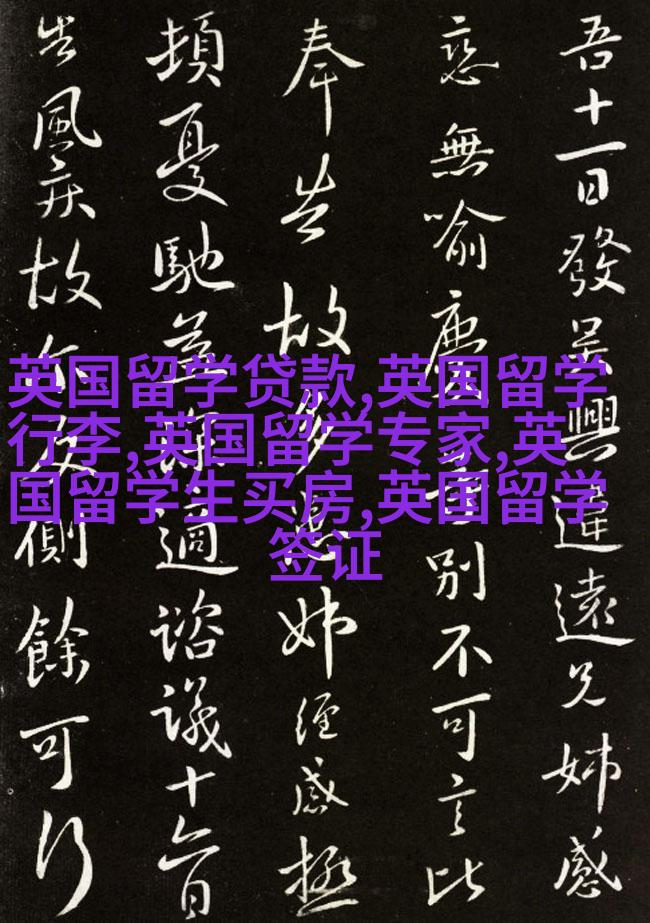 吾十一日發吴興違遠兄姊感
戀無喻別不可言比
奉告故多患姊經感極
頓憂馳益深適諮議十六日
告風疾故尔反側餘可行
英国留学贷款,英国留学
行李,英国留学专家,英
国留学生买房,英国留学
签证